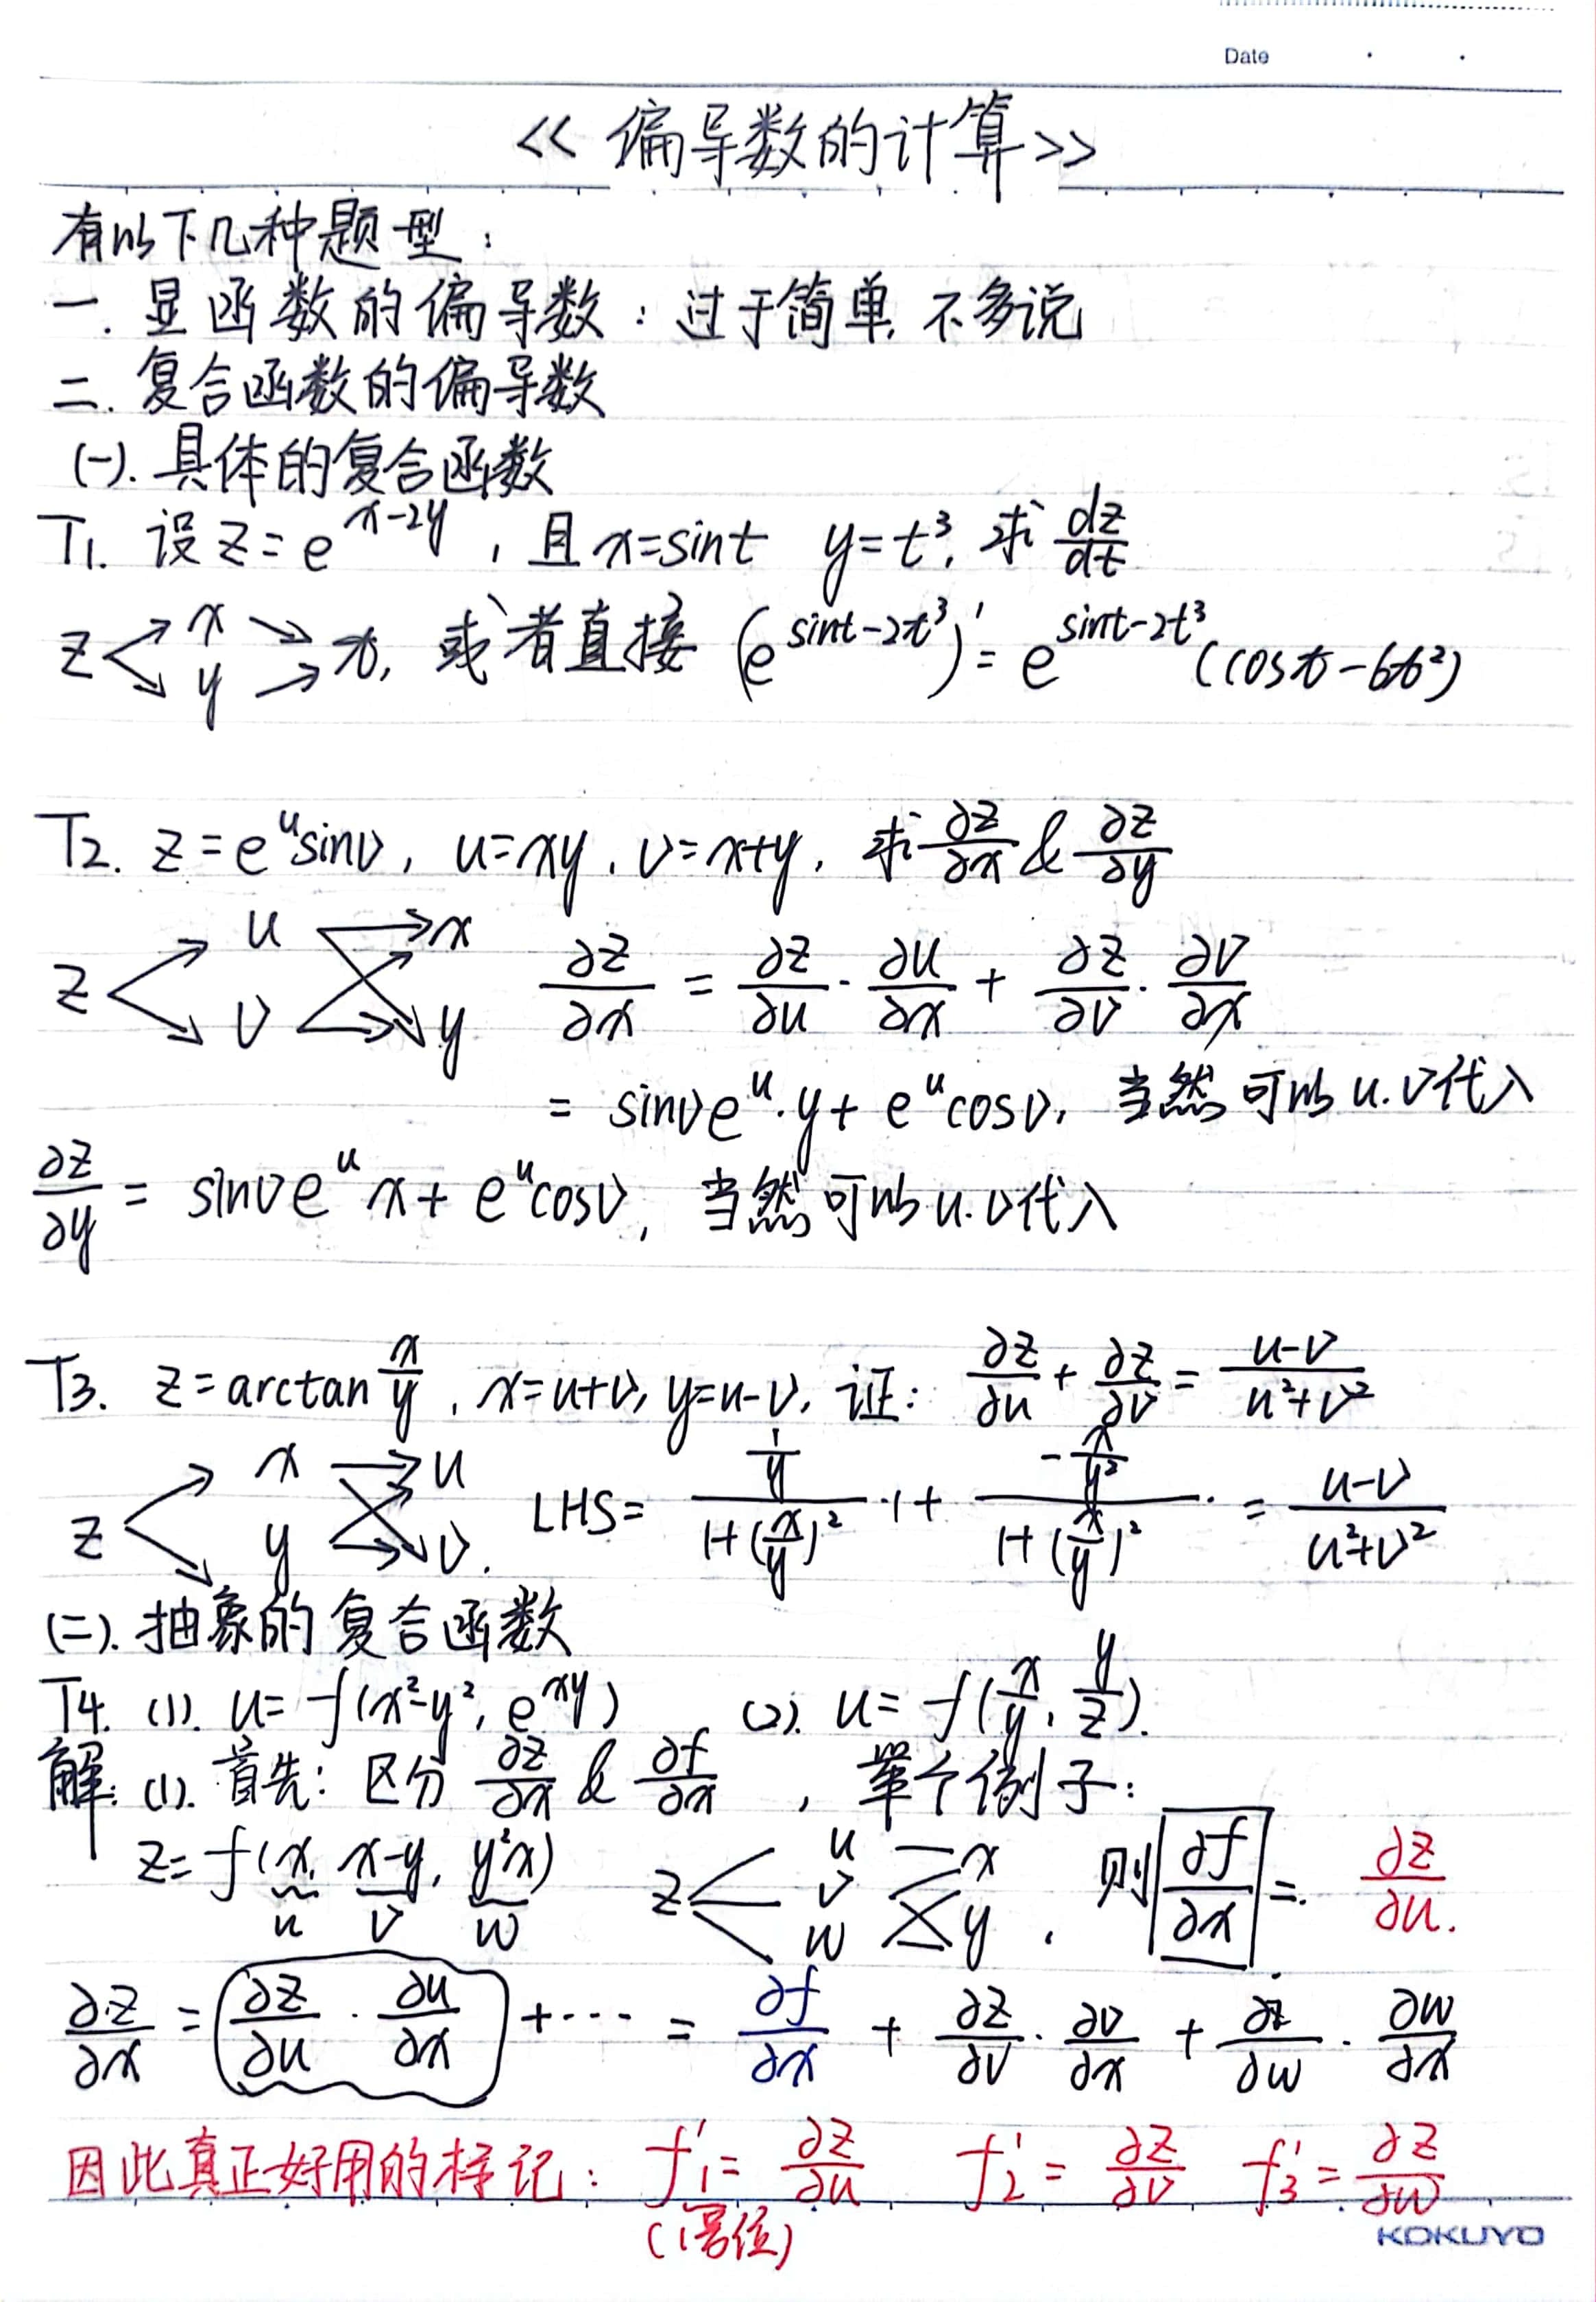 Date
<<偏导数的计算>>
有以下几种题型：
一. 显函数的偏导数：过于简单,不多说
二. 复合函数的偏导数
(一). 具体的复合函数
T1. 设 z=e^{x-2y}，且 x=sint y=t³, 求 dz/dt
z x y t, 或者直接 (e^{sint-2t³})'=e^{sint-2t³}(cost-6t²)
T2. z=e^u sinv, u=xy, v=x+y, 求 ∂z/∂x & ∂z/∂y
z u v x y ∂z/∂x = ∂z/∂u · ∂u/∂x + ∂z/∂v · ∂v/∂x
= sinve^u·y+e^u cosv, 当然可以u.v代入
∂z/∂y = sinve^u x+e^u cosv, 当然可以u.v代入
T3. z=arctan x/y, x=u+v, y=u-v, 证: ∂z/∂u + ∂z/∂v = (u-v)/(u²+v²)
z x y u v. LHS= (1/y)/(1+(x/y)²) ·1+ (-x/y²)/(1+(x/y)²) · = (u-v)/(u²+v²)
(二). 抽象的复合函数
T4. (1). u=f(x²-y², e^{xy}) (2). u=f(x/y, y/z).
解: (1). 首先: 区分 ∂z/∂x & ∂f/∂x , 举个例子:
z=f(x, x-y, y²x) z u v w x y , 则 ∂f/∂x =. ∂z/∂u.
u v w
∂z/∂x = ∂z/∂u · ∂u/∂x +··· = ∂f/∂x + ∂z/∂v · ∂v/∂x + ∂z/∂w · ∂w/∂x
因此真正好用的标记: f₁'= ∂z/∂u f₂'= ∂z/∂v f₃'= ∂z/∂w
(1号位)
KOKUYO